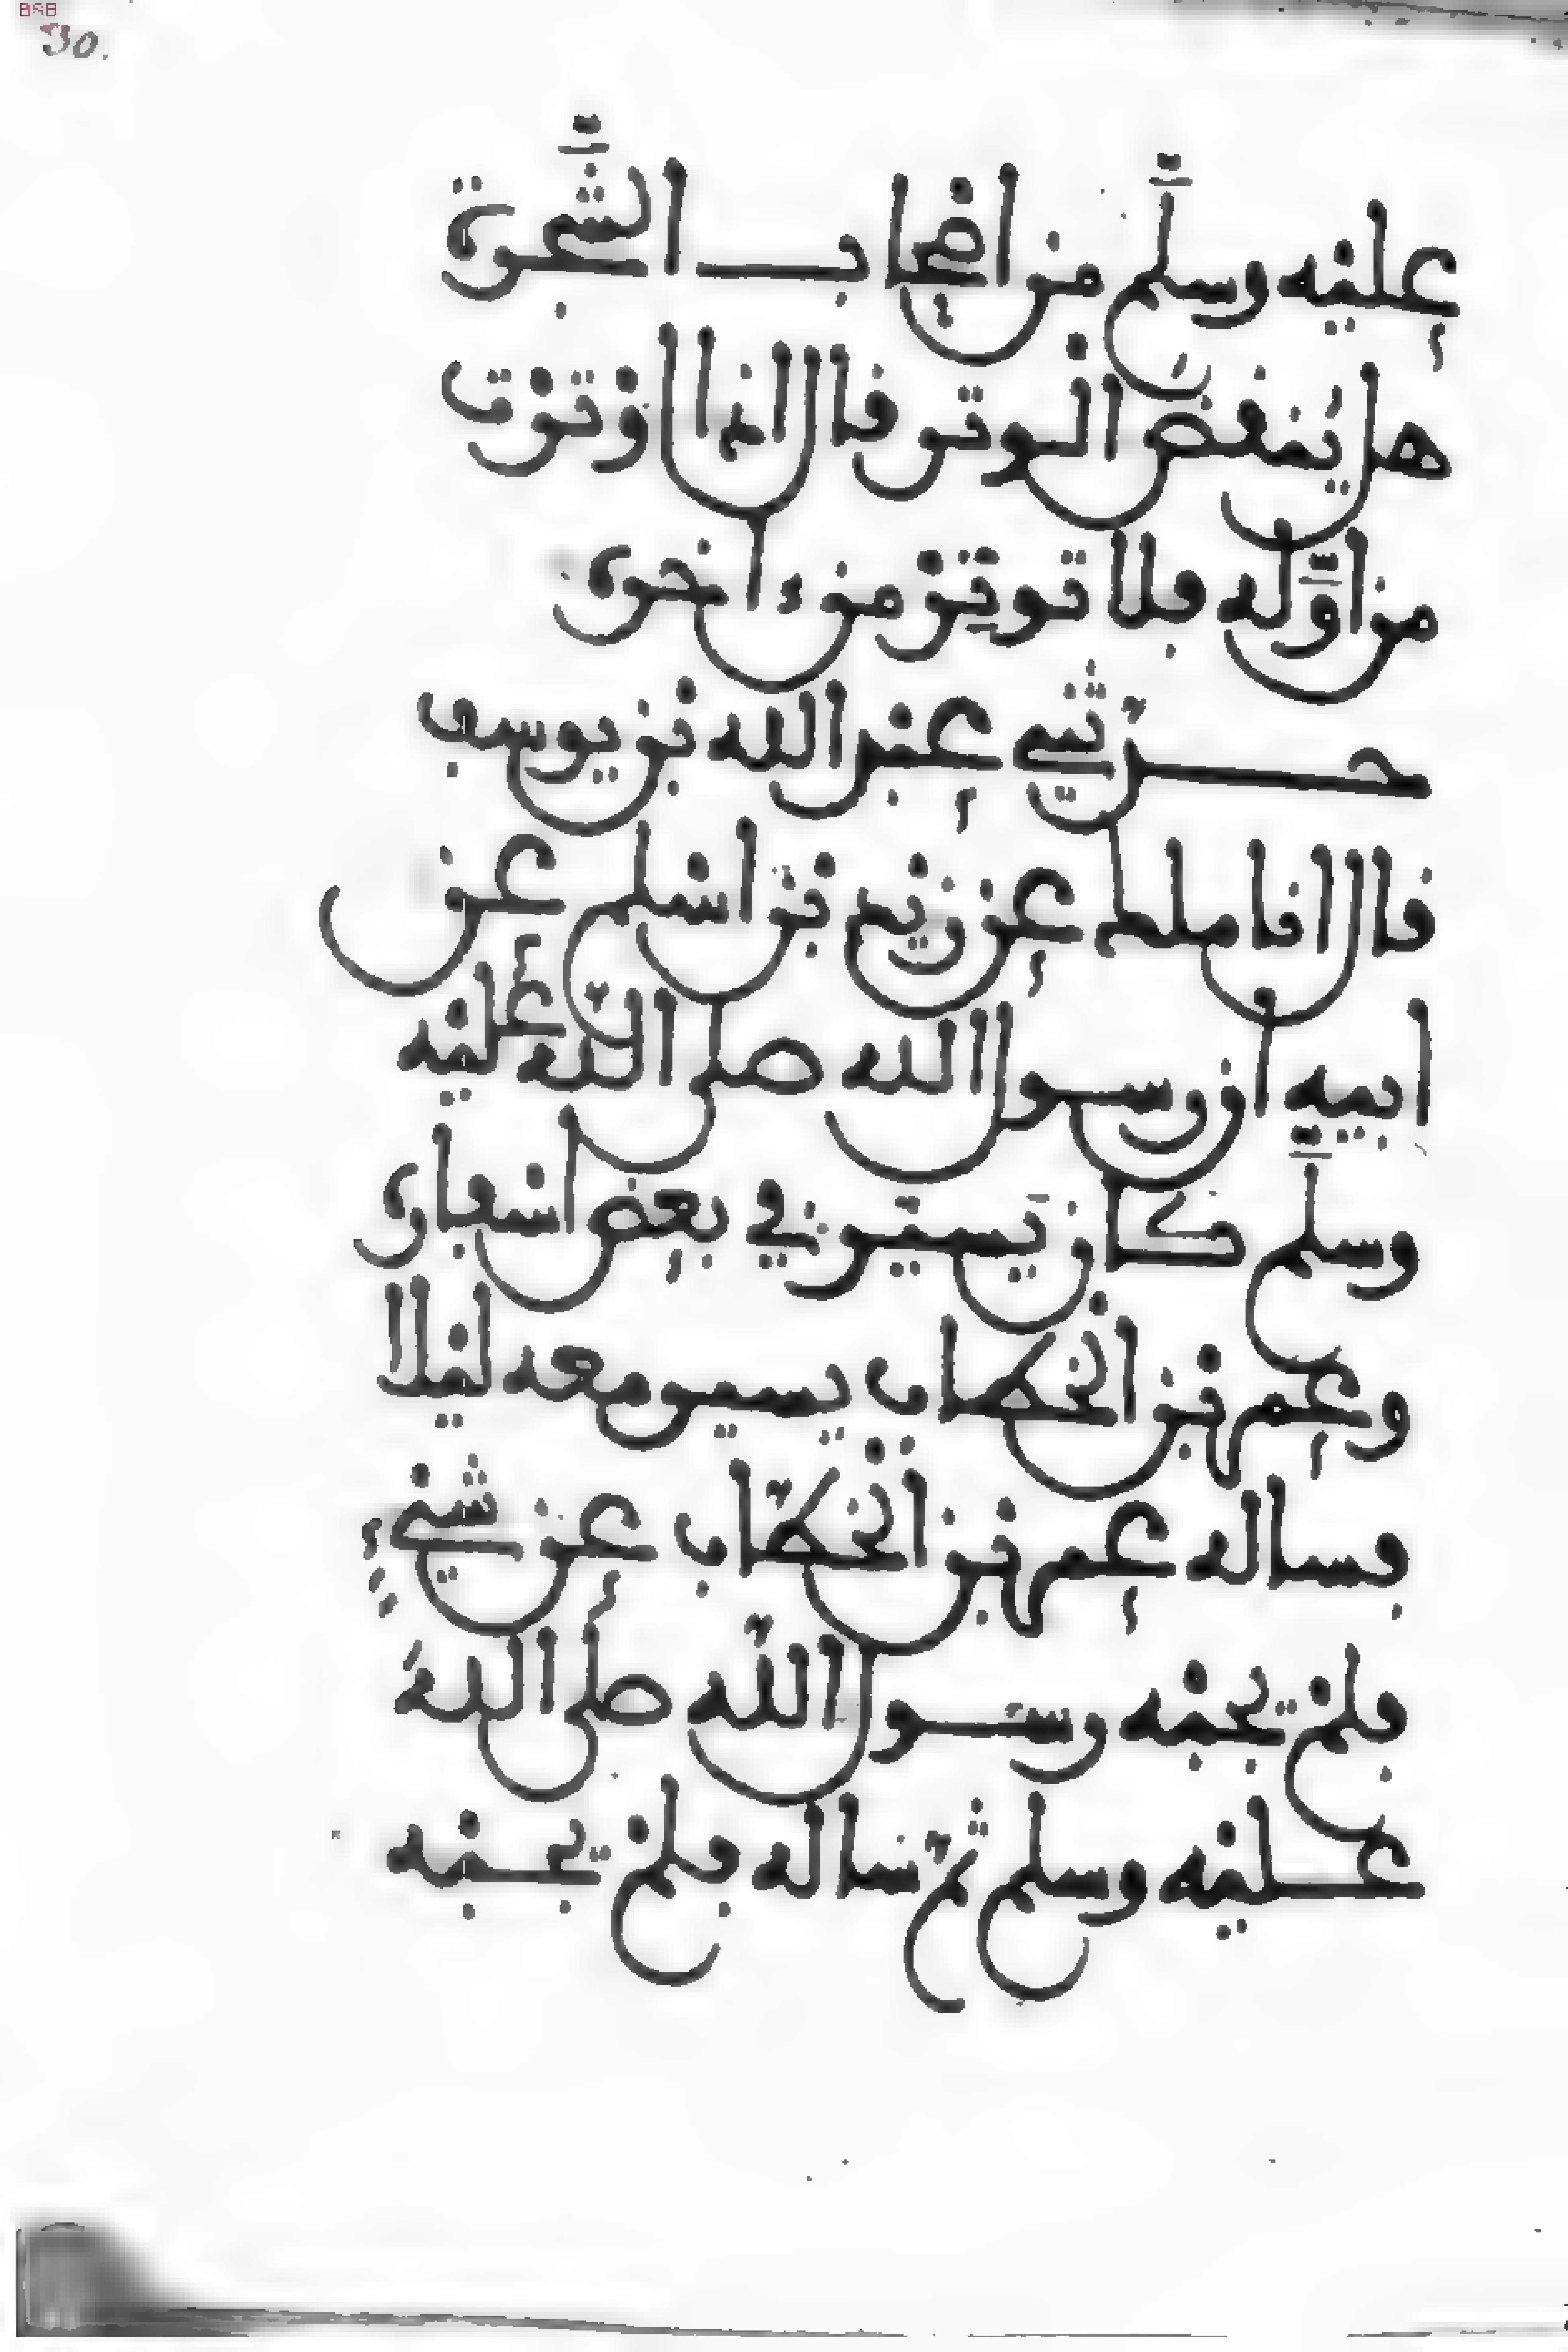 30.
عليه وسلم من اصحاب الشجرة
هل ينقض الوتر قال اذا اوترت
من اوله فلا توتر من ءاخرى
حدثني عبد الله بن يوسف
قال انا ملك عن زيد بن اسلم عن
ابيه ان رسول الله صلى الله عليه
وسلم كان يسير في بعض اسفارى
وعمر بن الخطاب يسير معه ليلا
فساله عمر بن الخطاب عن شيء
فلم يجبه رسول الله صلى الله
عليه وسلم ثم ساله فلم يجبه